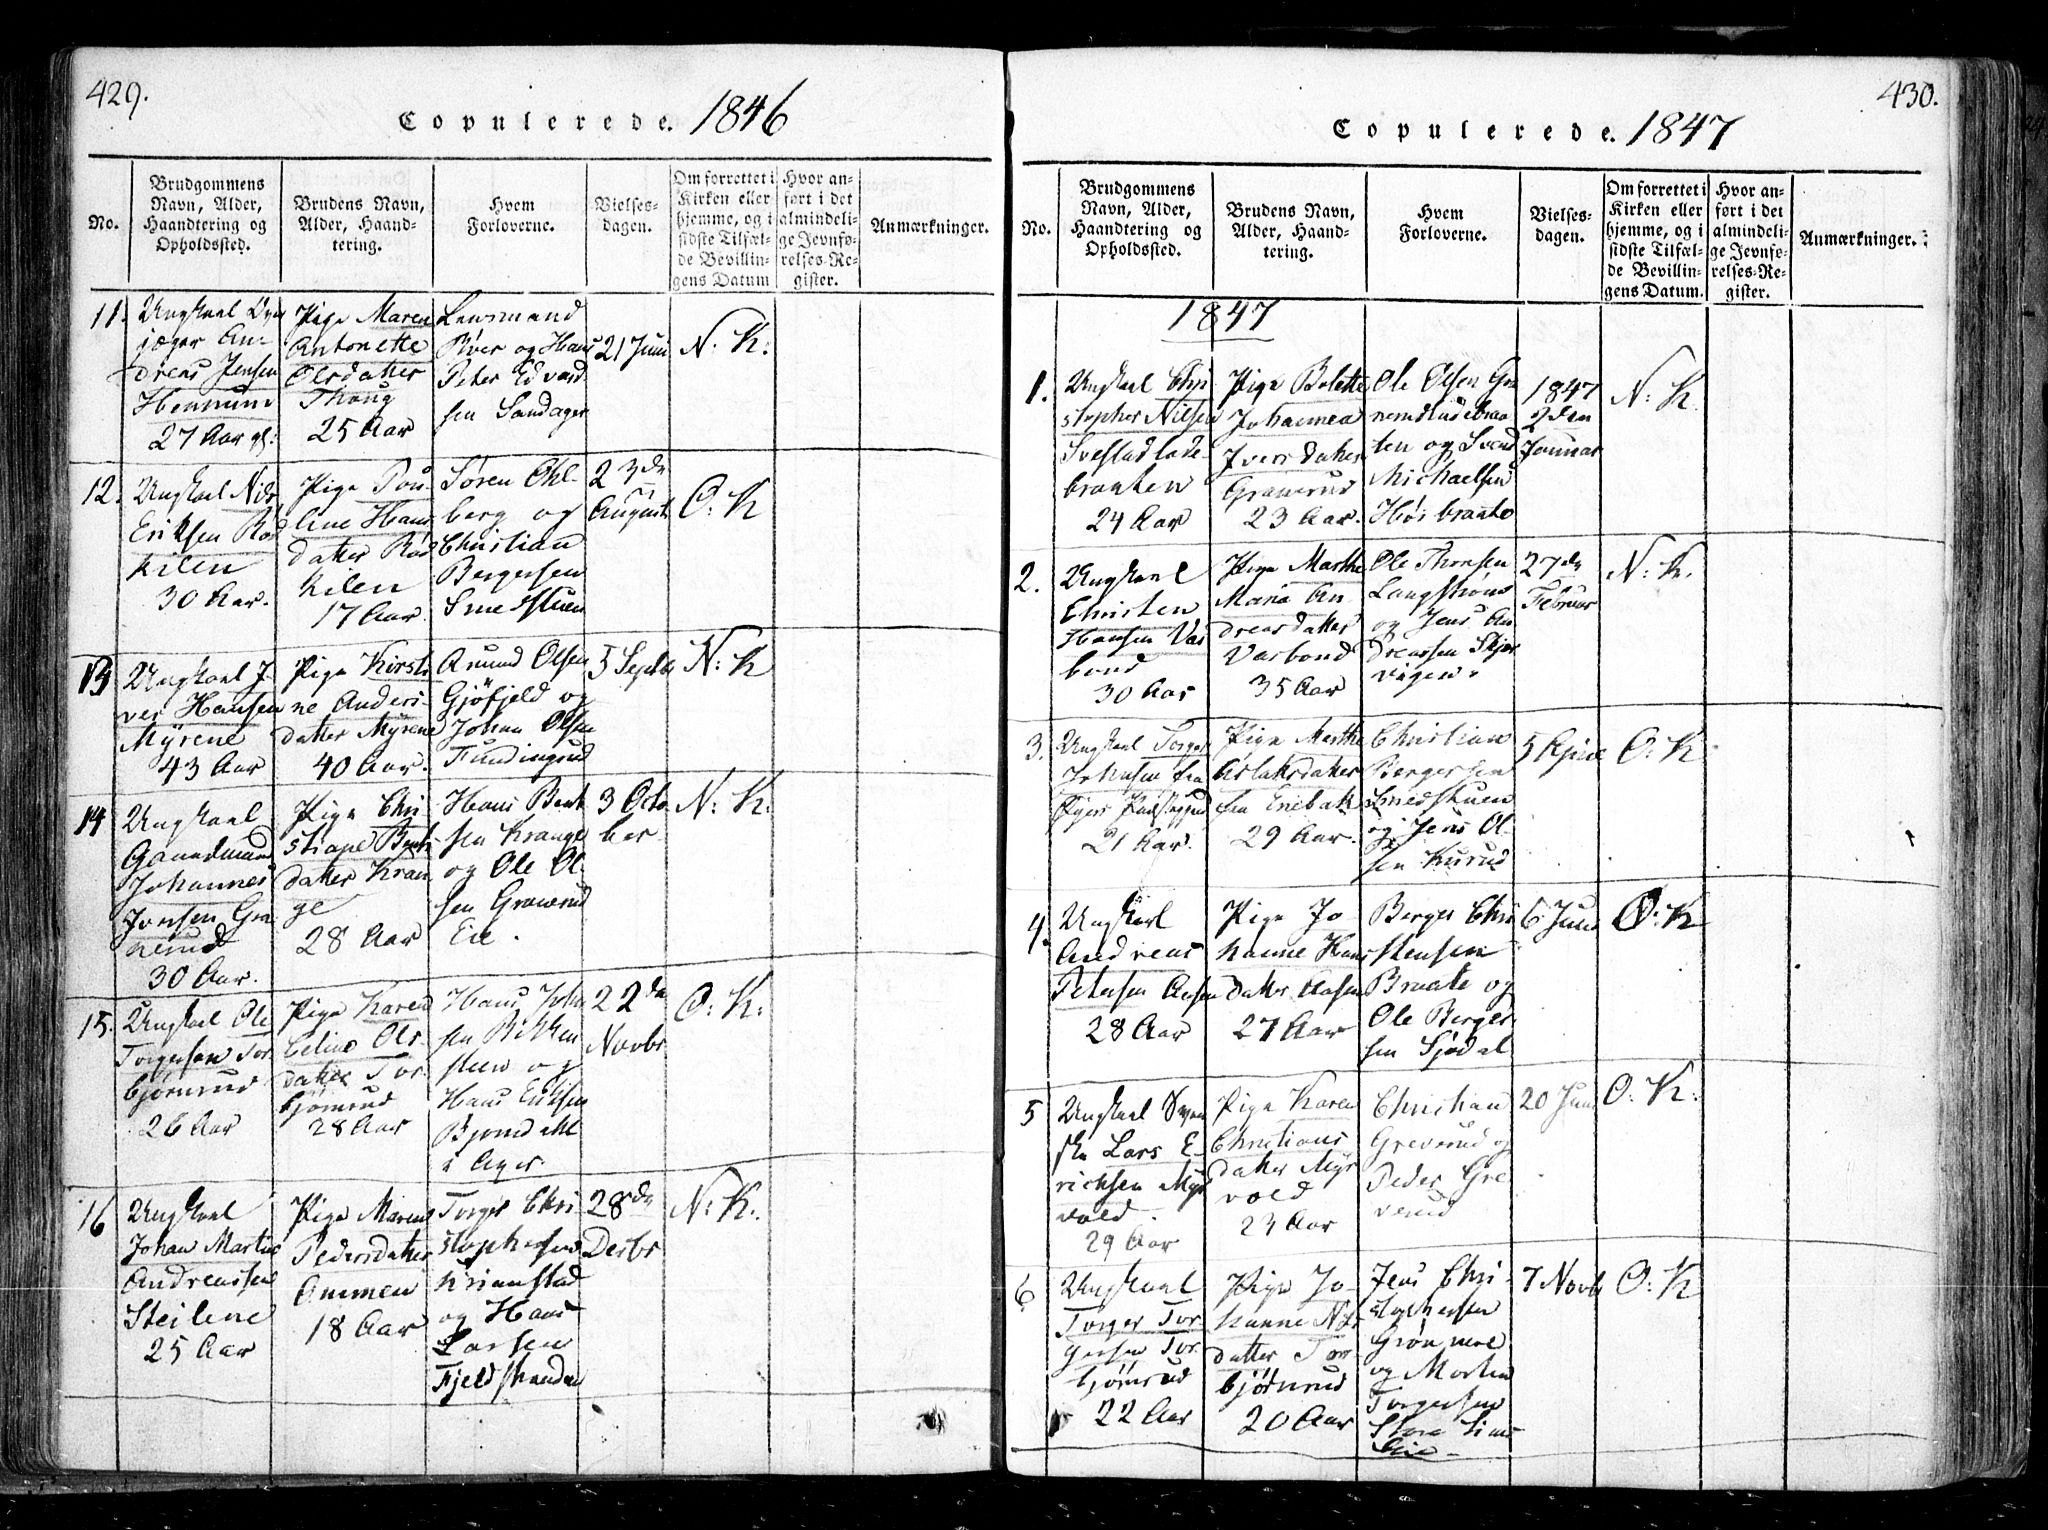 429.
Copulerede. 1846
No.
Brudgommens
Navn, Alder,
Haandtering og
Opholdssted.
Brudens Navn,
Alder, Haand-
tering.
Hvem
Forloverne.
Vielses-
dagen.
Om forrettet i
Kirken eller
hjemme, og i
sidste Tilfæl-
de Bevillin-
gens Datum
Hvor an-
ført i det
almindeli-
ge Jevnfø-
relses-Re-
gister.
Anmærkninger.
11.
Ungkarl
jæger An-
dreas Jensen
Hennum
27 Aar gl:
Pige Maren
Antonette
Olsdatter
Thoug
25 Aar
Lensmand
River og Hans
Peter Edvard
sen Sandager
21 Juni
N. K:
12.
Ungkarl Nils
Eriksen Rød
kilen
30 Aar.
Pige Pou-
line Hans
datter Rød
kilen
17 Aar.
Søren Ohl-
berg og
Christian
Bergersen
Smedstuen
23de
August
O. K
13
Ungkarl I-
ver Hansen
Myrene
43 Aar
Pige Kirsti-
ne Anders-
datter Myrene
40 Aar.
Amund Olsen
Gjøfjeld og
Johan Olsen
Fundingrud
5 Septbr
N: K
14
Ungkarl
Gaardmand
Johannes
Jonsen Gra
nerud
30 Aar.
Pige Chri
stiane Bents
datter Kran
ge
28 Aar
Hans Bent
sen Krange
og Ole Ol-
sen Granerud
Eie.
3 Octo
ber.
N: K:
15.
Ungkarl Ole
Torgersen Tor
bjørnrud
26 Aar
Pige Karen
Celine Ols-
datter Tor-
bjørnrud
28 Aar
Hans John
sen Bikken
steen og
Hans Eriksen
Bjørndahl
i Ager.
22de
Novbr
O: K:
16
Ungkarl
Johan Martin
Andreassen
Steilene
25 Aar
Pige Maren
Pedersdatter
Ommen
18 Aar
Torger Chri-
stophersen
Krianstad
og Hans
Larsen
Fjeldstranden
28de
Decbr
N: K:
430.
Copulerede. 1847
No.
Brudgommens
Navn, Alder,
Haandtering og
Opholdssted.
Brudens Navn,
Alder, Haand-
tering.
Hvem
Forloverne.
Vielses-
dagen.
Om forrettet i
Kirken eller
hjemme, og i
sidste Tilfæl-
de Bevillin-
gens Datum.
Hvor an-
ført i det
almindeli-
ge Jevnfø-
relses-Re-
gister.
Anmærkninger.
1847
1.
Ungkarl Chri
stopher Nilsen
Svestadlade-
braaten
24 Aar
Pige Bolette
Johannea
Iversdatter
Granerud
23 Aar.
Ole Olsen
ten og Svend
Michaelsen
Høibraate
1847
2den
Januar
N: K.
2.
Ungkarl
Christen
Hansen Vas
bond
30 Aar
Pige Marthe
Maria An
dreasdatter
Vasbond
35 Aar
Ole Thorsen
Langstrøms
og Jens An
dreassen Skjer
vigen.
27de
Februar
N: K.
3.
Ungkarl Torger
Johnsen fra
21 Aar.
Pige Marthe
Aslaksdatter
fra Enebak
29 Aar.
Christian
Bergersen
Smedstuen
og Jens Ol-
sen Kurud
5 April
O: K
4.
Ungkarl
Andreas
Petersen Aasen
28 Aar
Pige Jo-
hanne Hans
datter Aasen
27 Aar
Berger Chri
stensen
Braate og
Ole Berger
sen Sjødal
6 Juni
O: K
5
Ungkarl Sven
ske Lars E-
richsen Myr
vold.
29 Aar
Pige Karen
Christians
datter Myr
vold
23 Aar
Christian
Greverud og
Peder Gre
verud
20 Juni
O: K:
6
Ungkarl
Torger Tor
gersen Tor
bjørnrud
22 Aar
Pige Jo-
hanne Nils
datter Tor-
bjørnrud
20 Aar
Jens Chri-
stophersen
Grønmoe
og Morten
Torgersen
Store
Eie.
7 Novbr
O: K